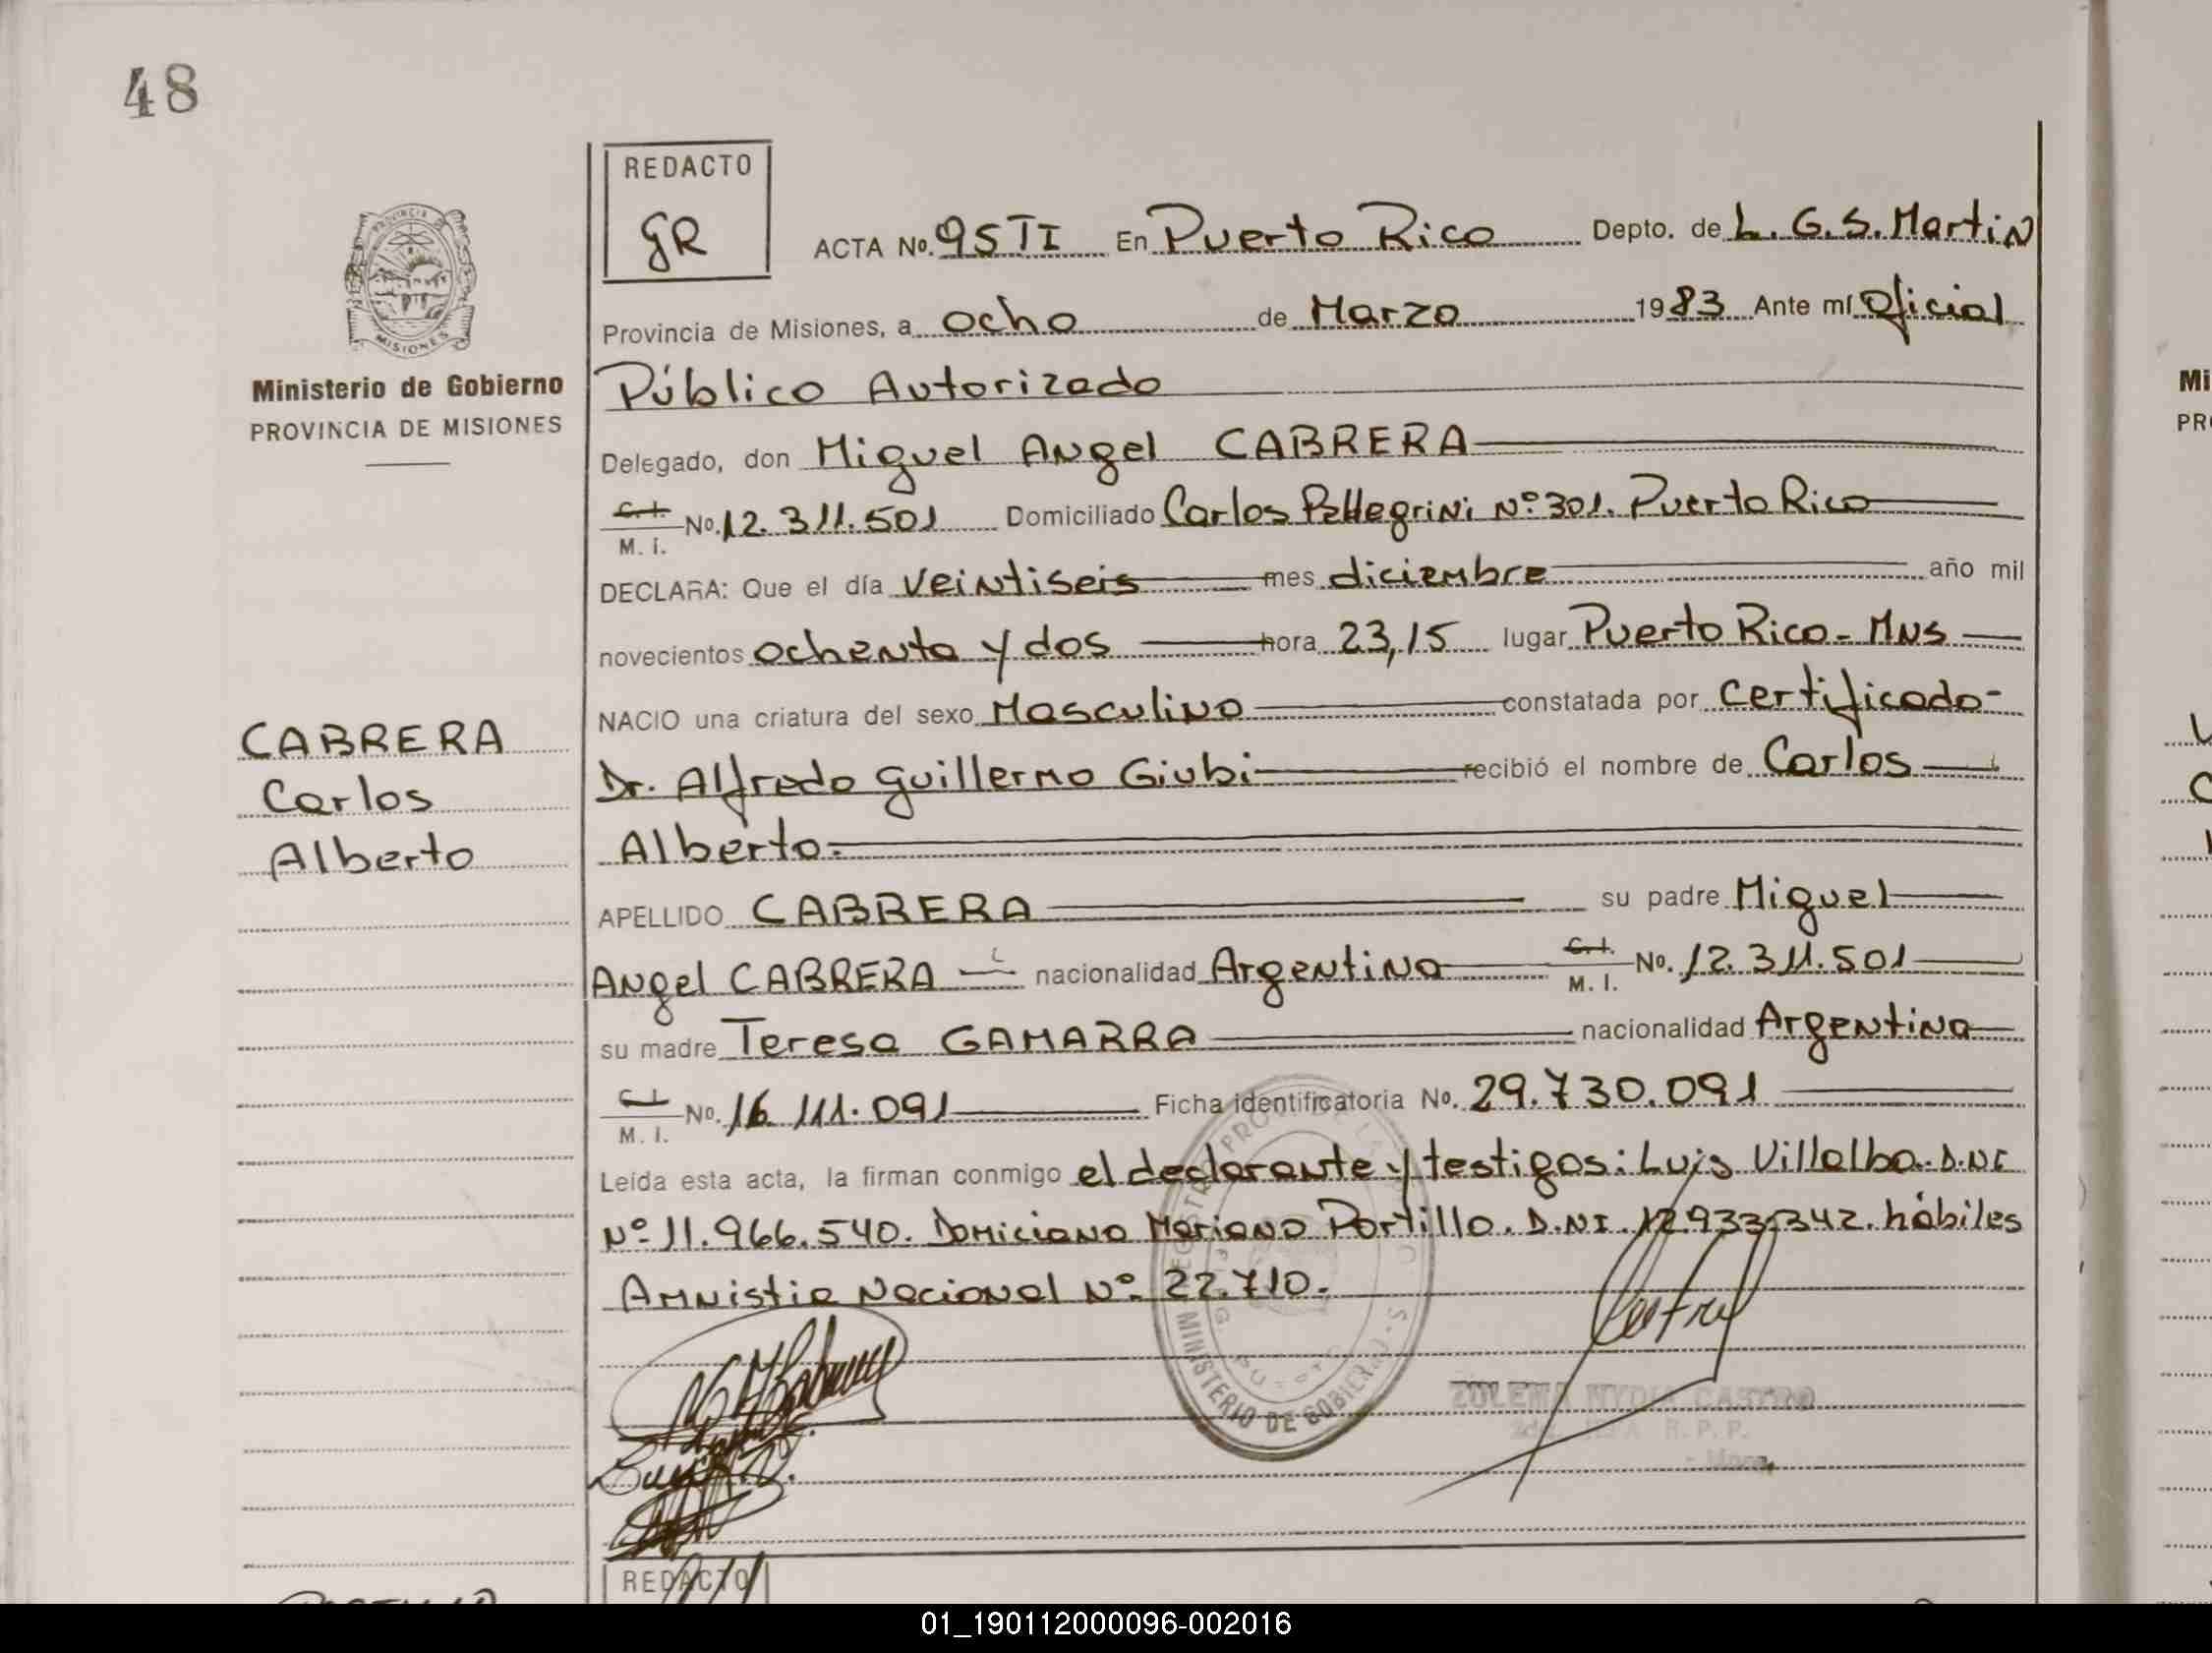 48
REDACTO
gR
PROVINCIA DE
MISIONES
Ministerio de Gobierno
PROVINCIA DE MISIONES
ACTA No. 95 TI En Puerto Rico Depto. de L. G. S. Martin
Provincia de Misiones, a ocho de Marzo 1983 Ante mí Oficial
Público Autorizado
Delegado, don Miguel Angel CABRERA
C. I.
M. I. No. 12.311.501 Domiciliado Carlos Pellegrini Nº 301. Puerto Rico
DECLARA: Que el día veintiseis mes diciembre año mil
novecientos ochenta y dos hora 23,15 lugar Puerto Rico - Mns
NACIO una criatura del sexo Masculino constatada por certificado-
Dr. Alfredo guillermo Giubi recibió el nombre de Carlos
Alberto.
CABRERA
Carlos
Alberto
APELLIDO CABRERA su padre Miguel
Angel CABRERA nacionalidad Argentina C. I. M. I. No. 12.311.501
su madre Teresa GAMARRA nacionalidad Argentina
C. I.
M. I. No. 16.111.091 Ficha identificatoria No. 29.730.091
Leída esta acta, la firman conmigo el declarante y testigos: Luis Villalba. D.NI
Nº 11.966.540. Domiciano Mariano Portillo. D.NI. 12.933.342. hábiles
Amnistia Nacional Nº 22.710.
MINISTERIO DE GOBIERNO
ZULEMA NYDIA CASTRO
R. P. P.
REDACTO
Mi
PR
01_190112000096-002016